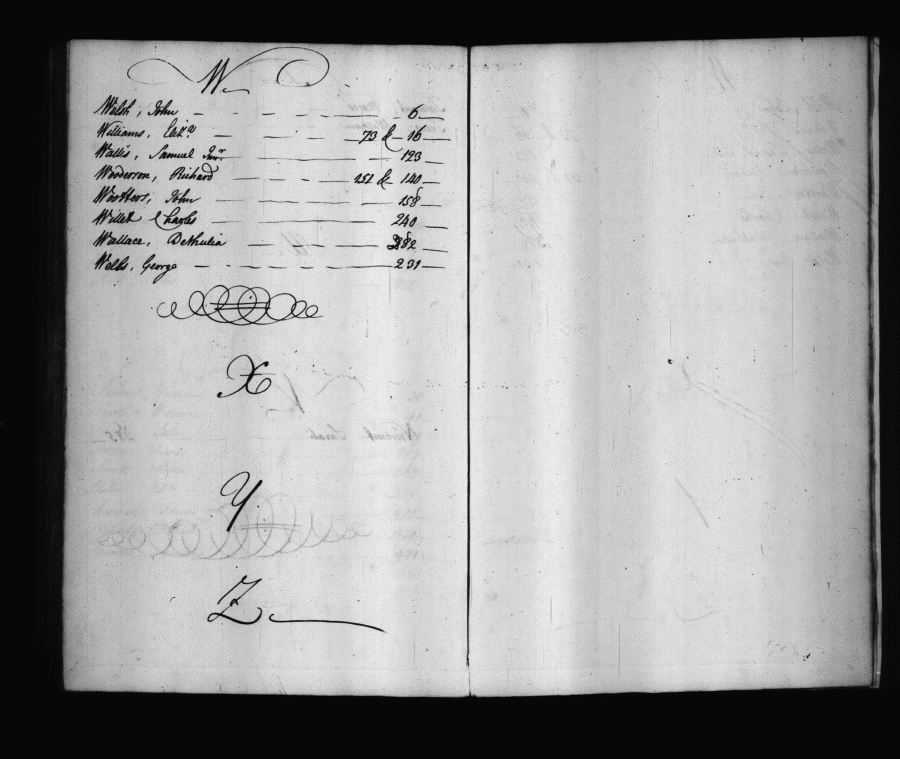 W
Welsh, John 6
Williams, Eliz.a 73 & 16
Wallis, Samuel Jun.r 123
Wooderson, Richard 151 & 140
John 158
Willet Charles 240
Wallace, Bethulia 282
Wells, George 231
X
Y
Z